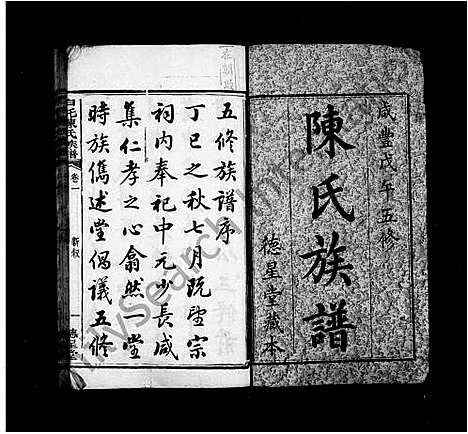 咸豐戊午五修
陳氏族譜
德星堂藏本
五修族譜序
丁巳之秋七月既望宗
祠内奉祀中元少長咸
集仁孝之心翕然一堂
時族儁述堂偶議五修
陳氏族譜
卷一
新敘
一